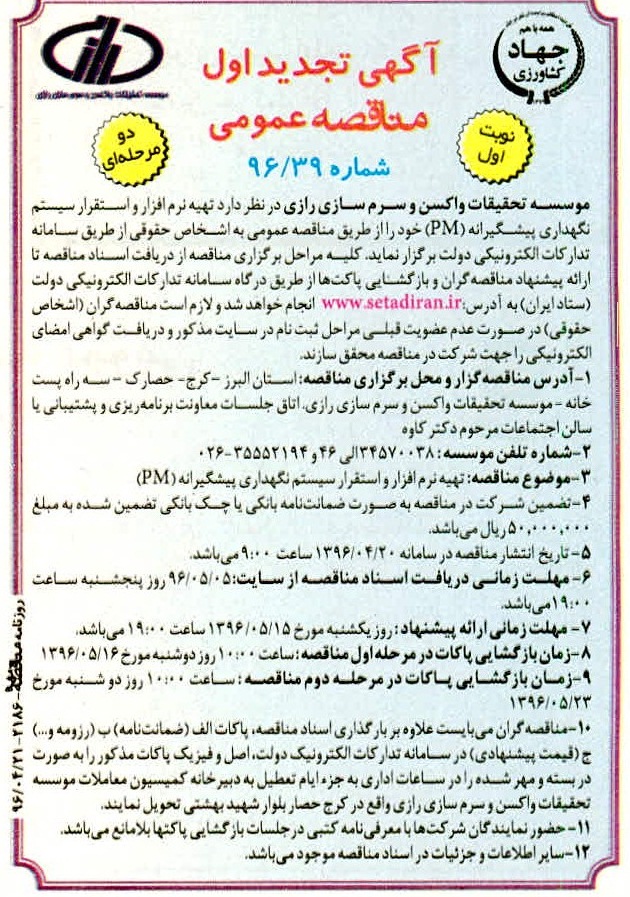 همه با هم
جهاد
کشاورزی
موسسه تحقیقات واکسن و سرم سازی رازی
آگهی تجدید اول
مناقصه عمومی
شماره ۹۶/۳۹
نوبت
اول
دو
مرحله‌ای
موسسه تحقیقات واکسن و سرم سازی رازی در نظر دارد تهیه نرم افزار و استقرار سیستم
نگهداری پیشگیرانه (PM) خود را از طریق مناقصه عمومی به اشخاص حقوقی از طریق سامانه
تدارکات الکترونیکی دولت برگزار نماید. کلیه مراحل برگزاری مناقصه از دریافت اسناد مناقصه تا
ارائه پیشنهاد مناقصه‌گران و بازگشایی پاکت‌ها از طریق درگاه سامانه تدارکات الکترونیکی دولت
(ستاد ایران) به آدرس: www.setadiran.ir انجام خواهد شد و لازم است مناقصه‌گران (اشخاص
حقوقی) در صورت عدم عضویت قبلی مراحل ثبت نام در سایت مذکور و دریافت گواهی امضای
الکترونیکی را جهت شرکت در مناقصه محقق سازند.
۱-آدرس مناقصه‌گزار و محل برگزاری مناقصه: استان البرز -کرج- حصارک - سه راه پست
خانه - موسسه تحقیقات واکسن و سرم سازی رازی. اتاق جلسات معاونت برنامه‌ریزی و پشتیبانی یا
سالن اجتماعات مرحوم دکتر کاوه
۲-شماره تلفن موسسه: ۳۴۵۷۰۰۳۸الی ۴۶ و ۳۵۵۵۲۱۹۴-۰۲۶
۳-موضوع مناقصه: تهیه نرم افزار و استقرار سیستم نگهداری پیشگیرانه (PM)
۴-تضمین شرکت در مناقصه به صورت ضمانت‌نامه بانکی یا چک بانکی تضمین شده به مبلغ
۵۰,۰۰۰,۰۰۰ ریال می‌باشد.
۵- تاریخ انتشار مناقصه در سامانه ۱۳۹۶/۰۴/۲۰ ساعت ۹:۰۰ می‌باشد.
۶- مهلت زمانی دریافت اسناد مناقصه از سایت: ۹۶/۰۵/۰۵ روز پنجشنبه ساعت
۱۹:۰۰ می‌باشد.
۷- مهلت زمانی ارائه پیشنهاد: روز یکشنبه مورخ ۱۳۹۶/۰۵/۱۵ ساعت ۱۹:۰۰ می‌باشد.
۸-زمان بازگشایی پاکات در مرحله اول مناقصه: ساعت ۱۰:۰۰ روز دوشنبه مورخ ۱۳۹۶/۰۵/۱۶
۹-زمان بازگشایی پاکات در مرحله دوم مناقصه : ساعت ۱۰:۰۰ روز دو شنبه مورخ
۱۳۹۶/۰۵/۲۳
۱۰-مناقصه‌گران می‌بایست علاوه بر بارگذاری اسناد مناقصه، پاکات الف (ضمانت‌نامه) ب (رزومه و...)
ج (قیمت پیشنهادی) در سامانه تدارکات الکترونیک دولت، اصل و فیزیک پاکات مذکور را به صورت
در بسته و مهر شده را در ساعات اداری به جزء ایام تعطیل به دبیرخانه کمیسیون معاملات موسسه
تحقیقات واکسن و سرم سازی رازی واقع در کرج حصار بلوار شهید بهشتی تحویل نمایند.
۱۱- حضور نمایندگان شرکت‌ها با معرفی‌نامه کتبی در جلسات بازگشایی پاکتها بلامانع می‌باشد.
۱۲-سایر اطلاعات و جزئیات در اسناد مناقصه موجود می‌باشد.
روزنامه مناقصه ۲۱۸۶-۹۶/۰۴/۲۱